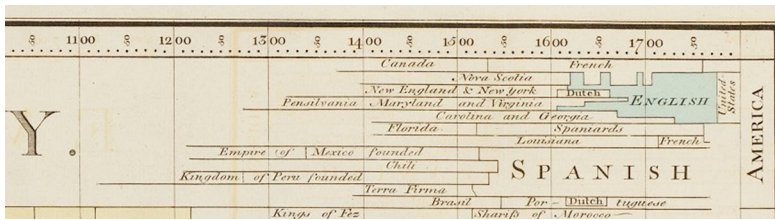 1100 1200 1300 1400 1500 1600 1700
50 50 50 50 50 50 50 50
Canada French
Nova Scotia
New England & New York Dutch
Pensilvania Maryland and Virginia ENGLISH
United States
Carolina and Georgia
Florida Spaniards
Louisiana French
Empire of Mexico founded
Chili
SPANISH
Kingdom of Peru founded
Terra Firma
Brasil Por- Dutch tuguese
Kings of Fez Sharifs of Morocco
Y.
AMERICA